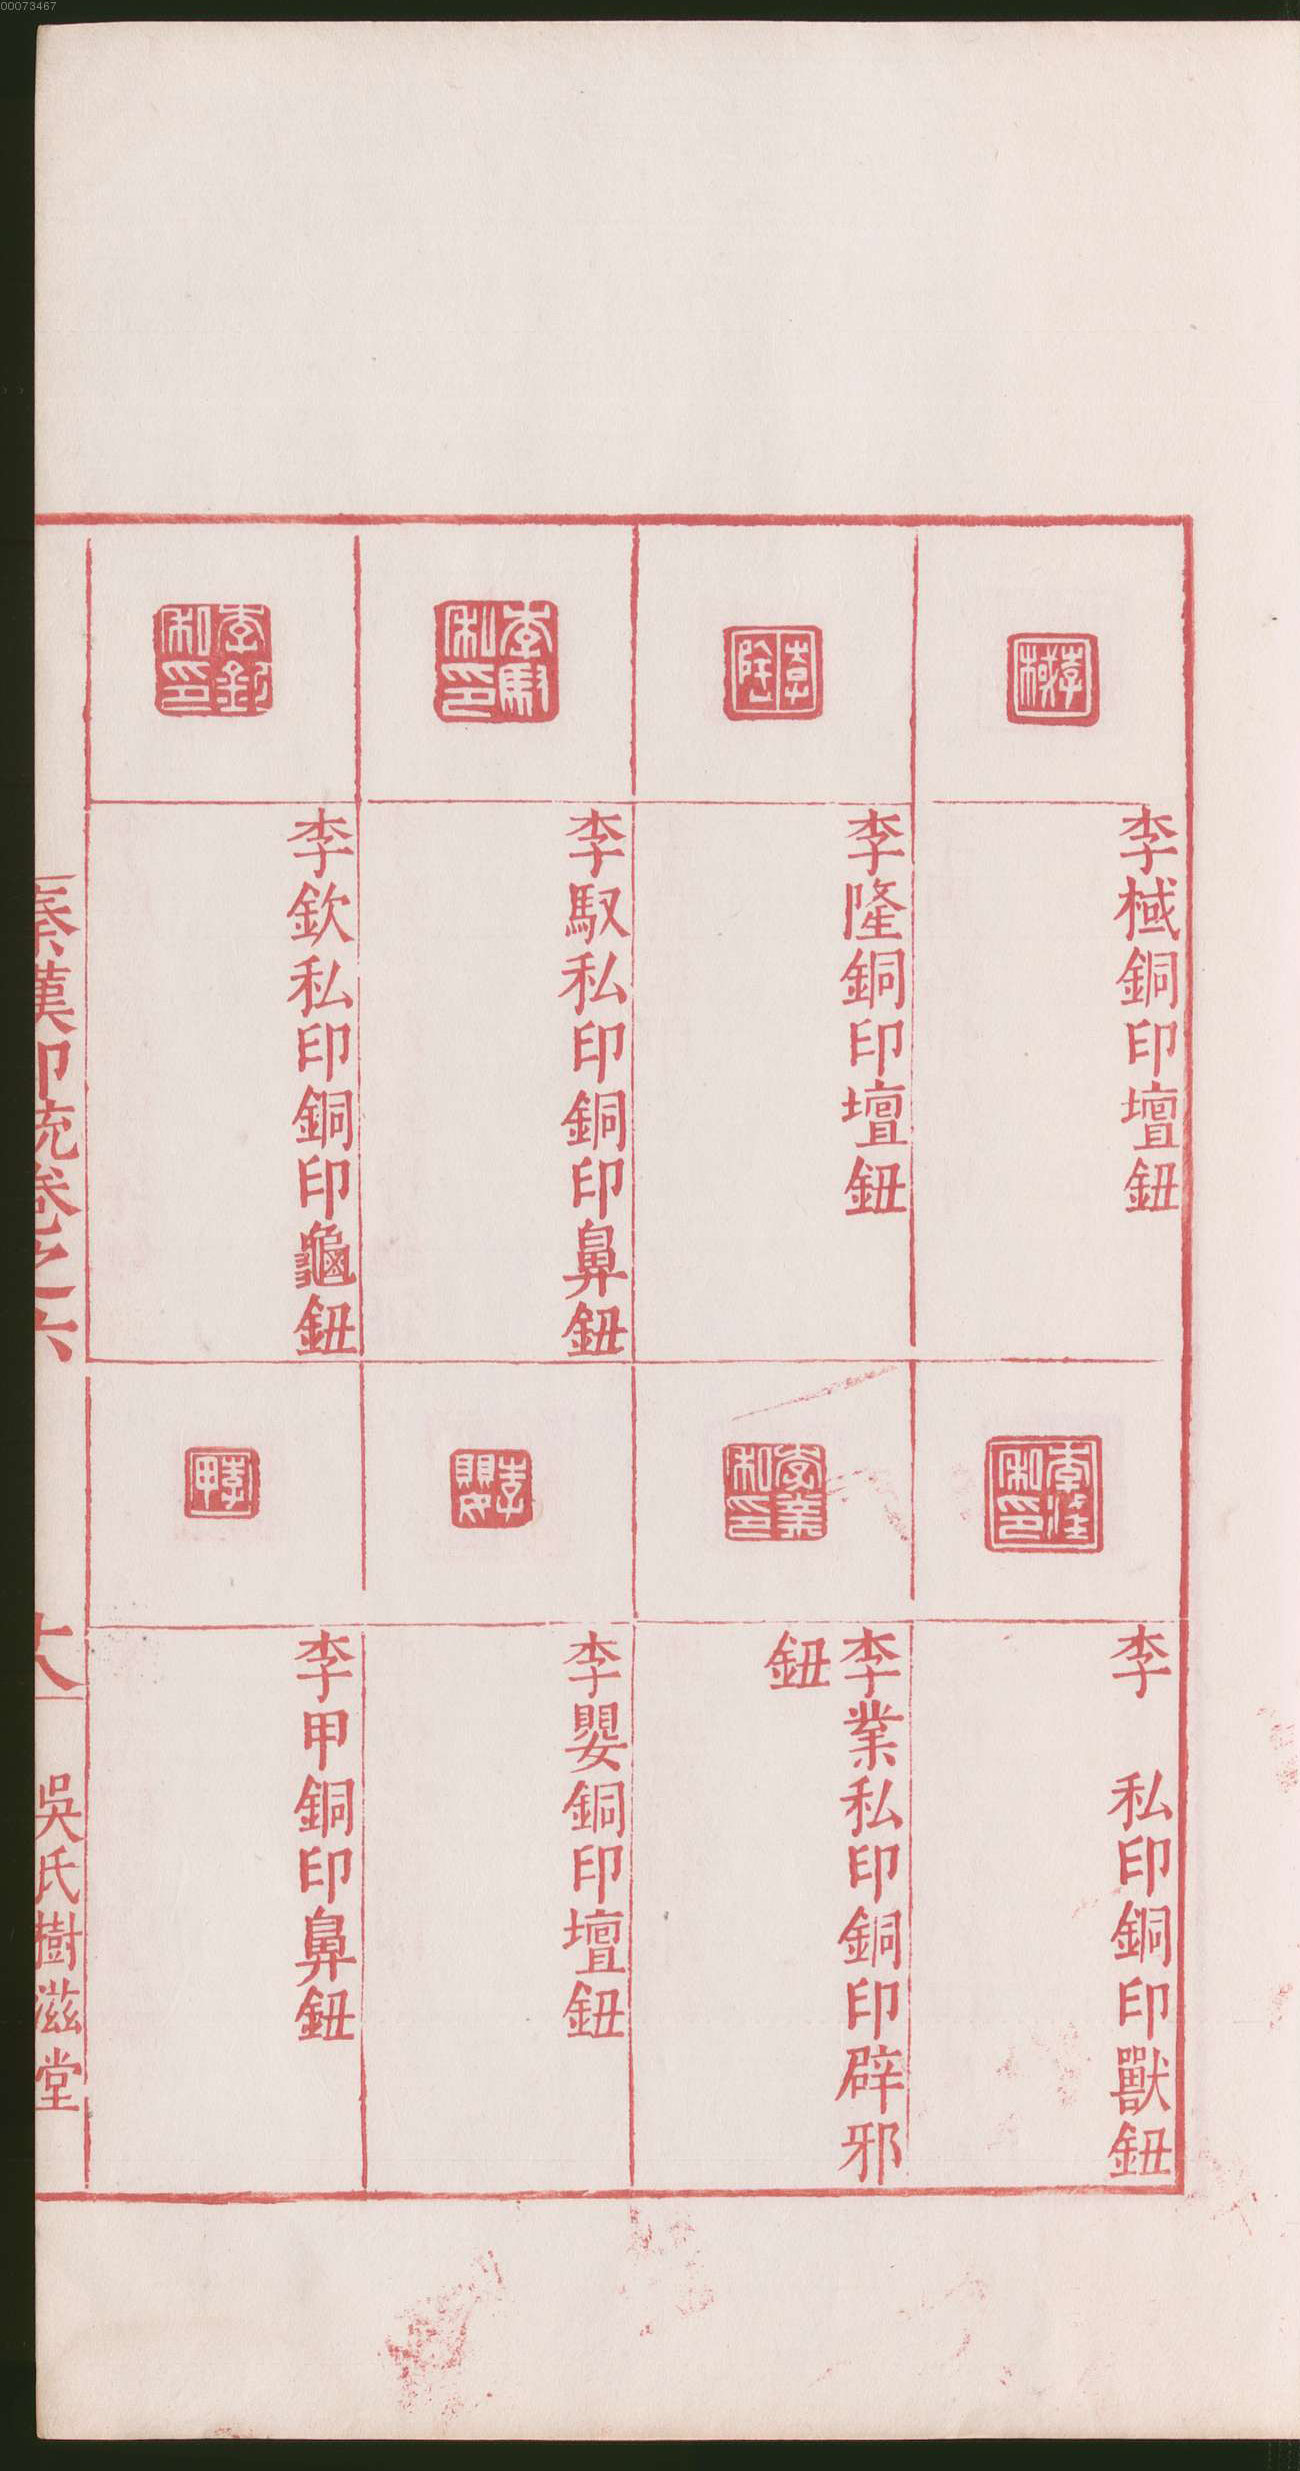 00073467
李棫銅印壇鈕
李隆銅印壇鈕
李馭私印銅印鼻鈕
李欽私印銅印龜鈕
李　私印銅印獸鈕
李業私印銅印辟邪
鈕
李嬰銅印壇鈕
李甲銅印鼻鈕
秦漢印統卷之六
十八
吳氏樹滋堂